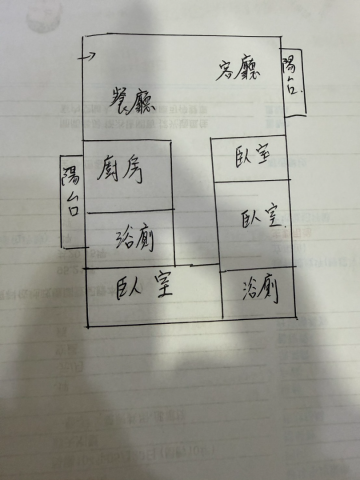 客廳
陽台
餐廳
廚房
臥室
陽台
浴廁
臥室
臥室
浴廁